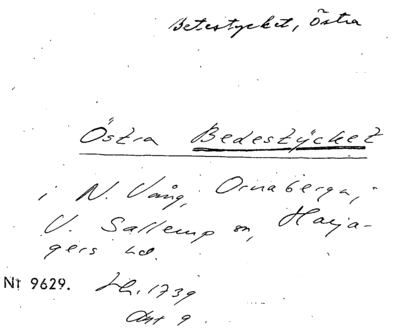 Betestycket, Östra
Östra Bedestÿcket
i N. Vång, Ornaberga,
V. Sallerup sn, Harja-
gers hd.
Nr 9629. Lh. 1739
Akt 9.